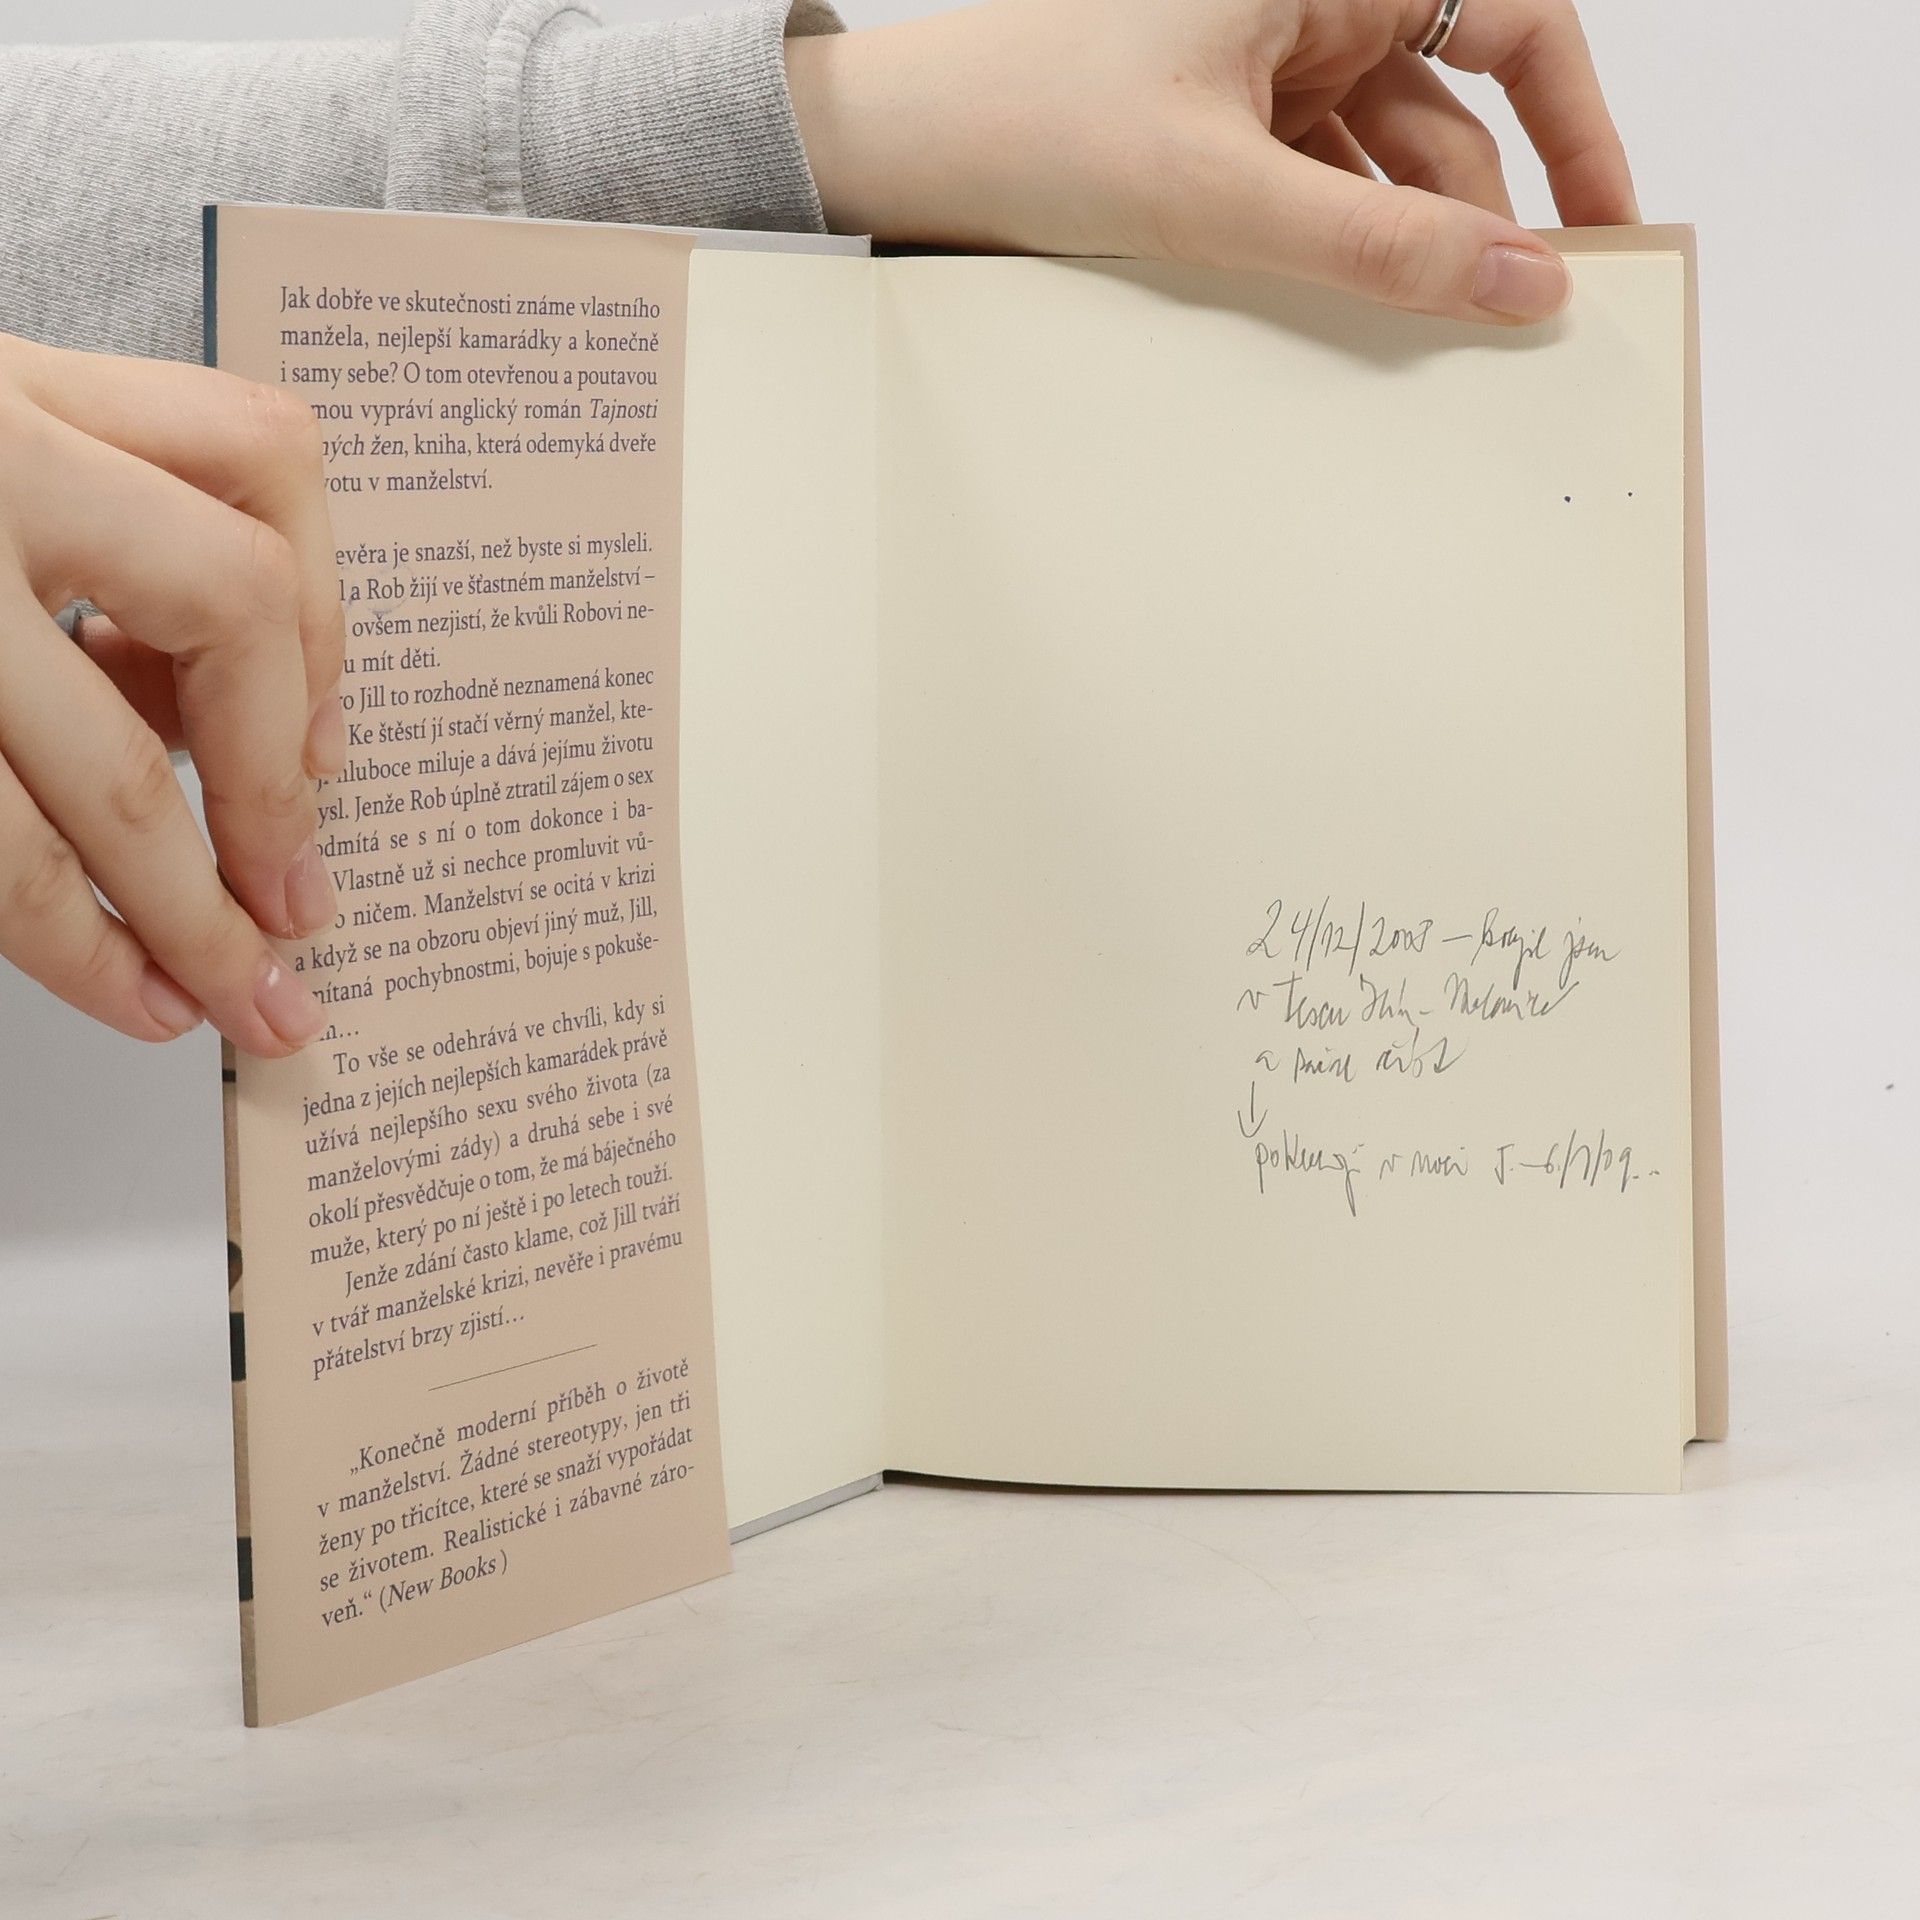 Jak dobře ve skutečnosti známe vlastního
manžela, nejlepší kamarádky a konečně
i samy sebe? O tom otevřenou a poutavou
mou vypráví anglický román Tajnosti
ných žen, kniha, která odemyká dveře
votu v manželství.
evěra je snazší, než byste si mysleli.
l a Rob žijí ve šťastném manželství –
ovšem nezjistí, že kvůli Robovi ne-
u mít děti.
ro Jill to rozhodně neznamená konec
Ke štěstí jí stačí věrný manžel, kte-
hluboce miluje a dává jejímu životu
ysl. Jenže Rob úplně ztratil zájem o sex
odmítá se s ní o tom dokonce i ba-
Vlastně už si nechce promluvit vů-
o ničem. Manželství se ocitá v krizi
a když se na obzoru objeví jiný muž, Jill,
mítaná pochybnostmi, bojuje s pokuše-
m…
To vše se odehrává ve chvíli, kdy si
jedna z jejích nejlepších kamarádek právě
užívá nejlepšího sexu svého života (za
manželovými zády) a druhá sebe i své
okolí přesvědčuje o tom, že má báječného
muže, který po ní ještě i po letech touží.
Jenže zdání často klame, což Jill tváří
v tvář manželské krizi, nevěře i pravému
přátelství brzy zjistí…
„Konečně moderní příběh o životě
v manželství. Žádné stereotypy, jen tři
ženy po třicítce, které se snaží vypořádat
se životem. Realistické i zábavné záro-
veň.“ (New Books)
24/12/2008 – jsem
v Tescu
a
v noci 5.–6./1/09..